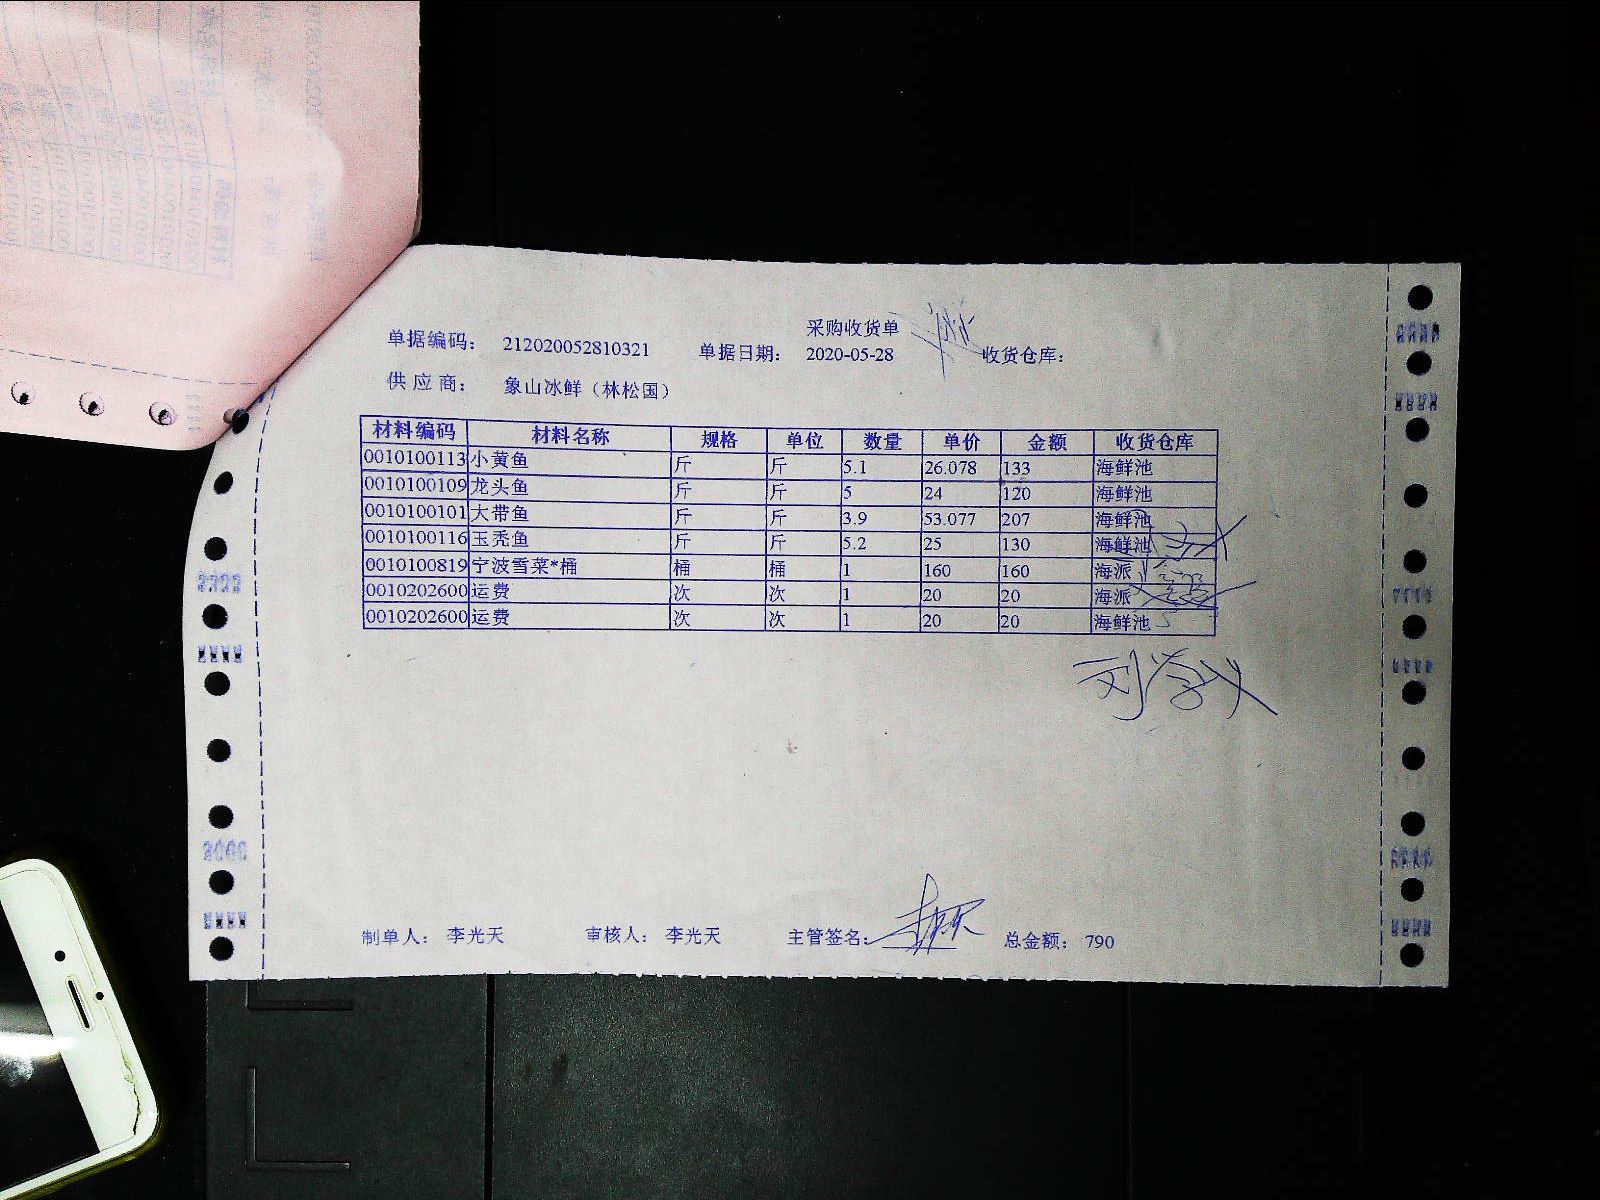 采购收货单
单据编码： 212020052810321 单据日期： 2020-05-28 收货仓库：
供 应 商： 象山冰鲜（林松国）
材料编码 材料名称 规格 单位 数量 单价 金额 收货仓库
0010100113 小黄鱼 斤 斤 5.1 26.078 133 海鲜池
0010100109 龙头鱼 斤 斤 5 24 120 海鲜池
0010100101 大带鱼 斤 斤 3.9 53.077 207 海鲜池
0010100116 玉秃鱼 斤 斤 5.2 25 130 海鲜池
0010100819 宁波雪菜*桶 桶 桶 1 160 160 海派
0010202600 运费 次 次 1 20 20 海派
0010202600 运费 次 次 1 20 20 海鲜池
刘学义
制单人： 李光天 审核人： 李光天 主管签名： 总金额： 790